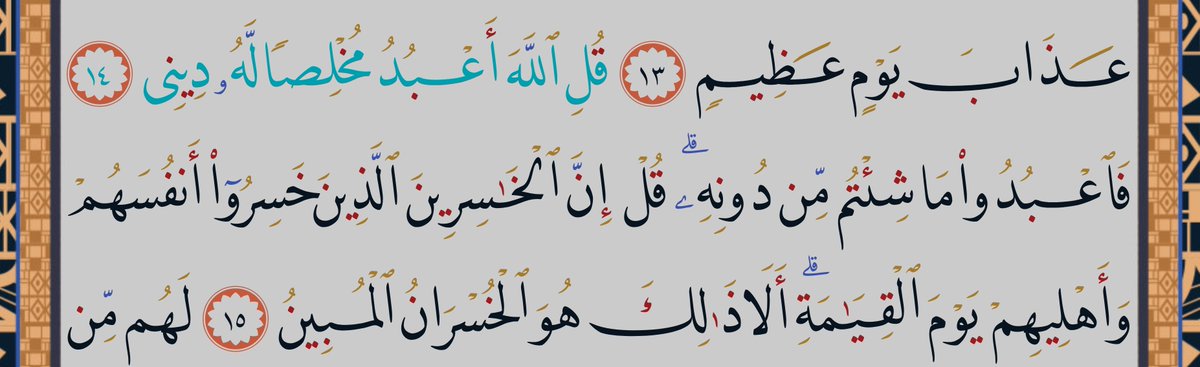 عَذَابَ يَوْمٍ عَظِيمٍ ١٣ قُلِ ٱللَّهَ أَعْبُدُ مُخْلِصًا لَّهُۥ دِينِى ١٤
فَٱعْبُدُوا۟ مَا شِئْتُم مِّن دُونِهِۦ ۗ قُلْ إِنَّ ٱلْخَـٰسِرِينَ ٱلَّذِينَ خَسِرُوٓا۟ أَنفُسَهُمْ
وَأَهْلِيهِمْ يَوْمَ ٱلْقِيَـٰمَةِ ۗ أَلَا ذَٰلِكَ هُوَ ٱلْخُسْرَانُ ٱلْمُبِينُ ١٥ لَهُم مِّن